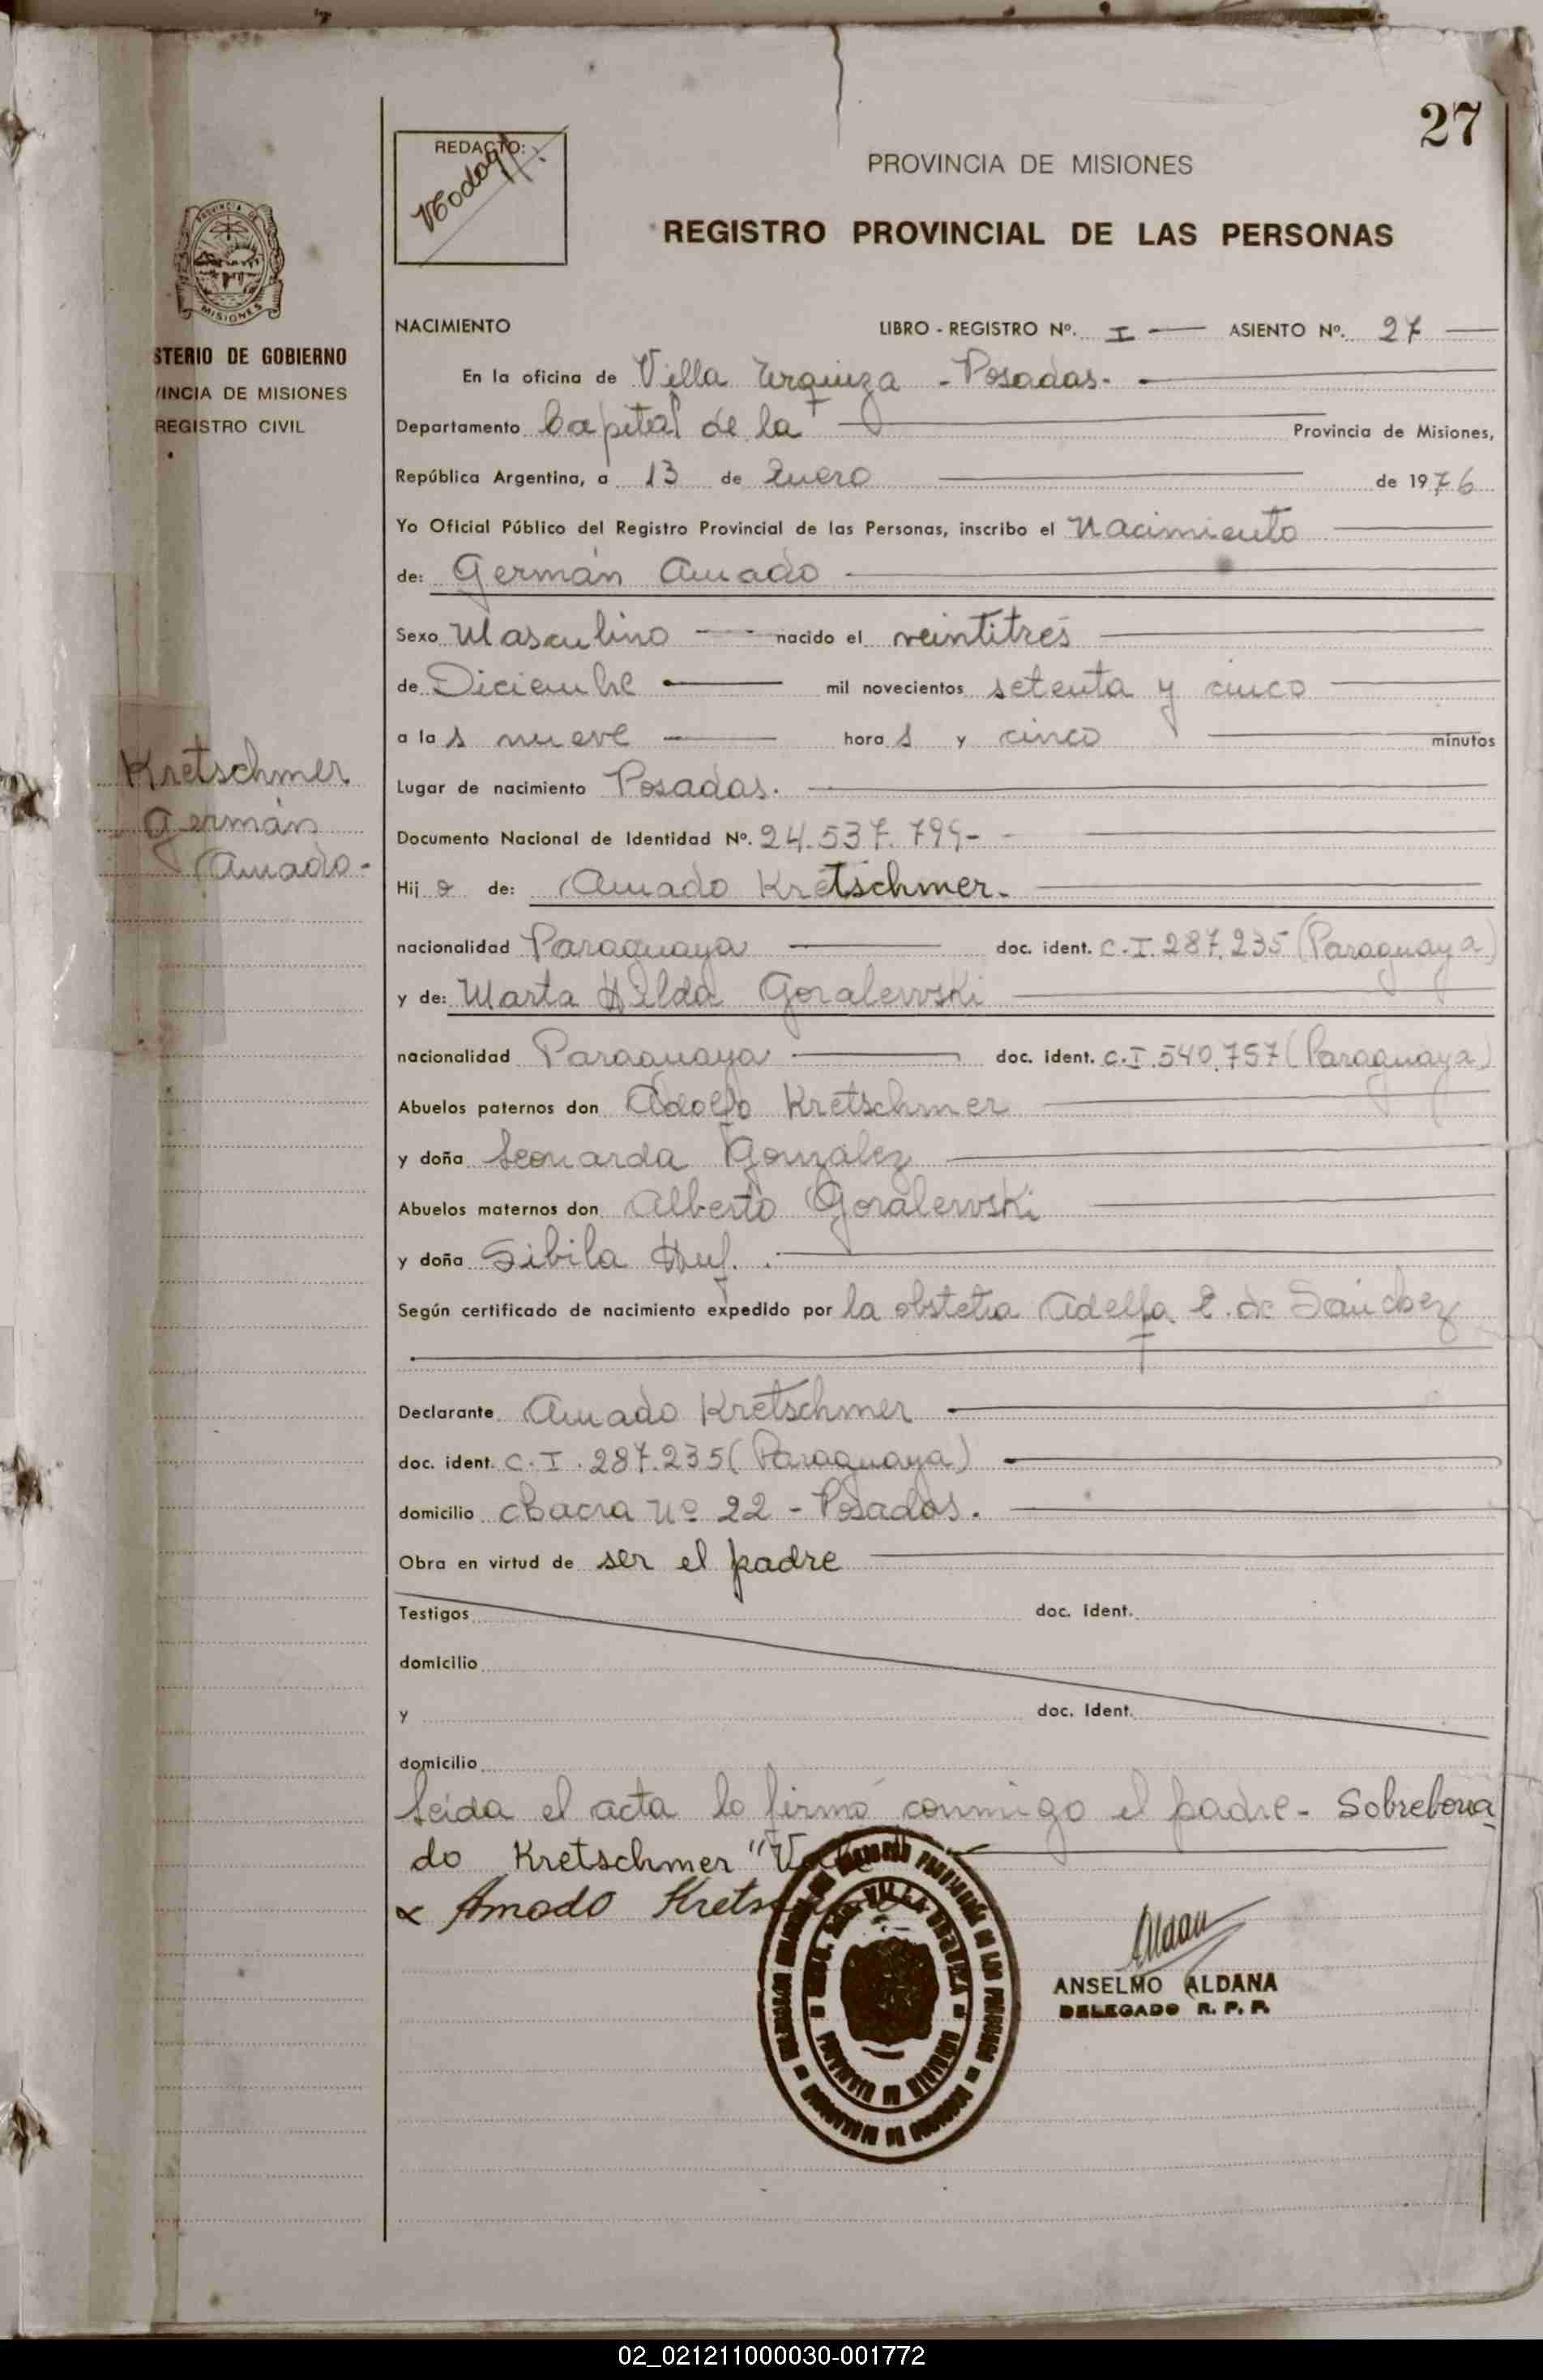 27
REDACTO:
PROVINCIA DE MISIONES
REGISTRO PROVINCIAL DE LAS PERSONAS
PROVINCIA DE
MISIONES
STERIO DE GOBIERNO
VINCIA DE MISIONES
REGISTRO CIVIL
NACIMIENTO LIBRO - REGISTRO Nº. I ASIENTO Nº. 27
En la oficina de Villa Urquiza - Posadas.
Departamento Capital de la Provincia de Misiones,
República Argentina, a 13 de Enero de 1976
Yo Oficial Público del Registro Provincial de las Personas, inscribo el Nacimiento
de: Germán Amado
Sexo Masculino nacido el veintitrés
de Diciembre mil novecientos setenta y cinco
a la s nueve hora s y cinco minutos
Kretschmer
Germán
Amado-
Lugar de nacimiento Posadas.
Documento Nacional de Identidad Nº. 24.537.799-
Hij o de: Amado Kretschmer.
nacionalidad Paraguaya doc. ident. C.I. 287.235 (Paraguaya)
y de: Marta Hilda Goralewski
nacionalidad Paraguaya doc. ident. C.I. 540.757 (Paraguaya)
Abuelos paternos don Adolfo Kretschmer
y doña Leonarda González
Abuelos maternos don Alberto Goralewski
y doña Sibila Huf.
Según certificado de nacimiento expedido por la obstetra Adelfa E. de Sánchez
Declarante Amado Kretschmer
doc. ident. C.I. 287.235 (Paraguaya)
domicilio Chacra Nº 22 - Posadas.
Obra en virtud de ser el padre
Testigos doc. ident.
domicilio
y doc. ident.
domicilio
Leída el acta lo firmó conmigo el padre - Sobreborra
do Kretschmer
x Amado
ANSELMO ALDANA
DELEGADO R. P. P.
02_021211000030-001772